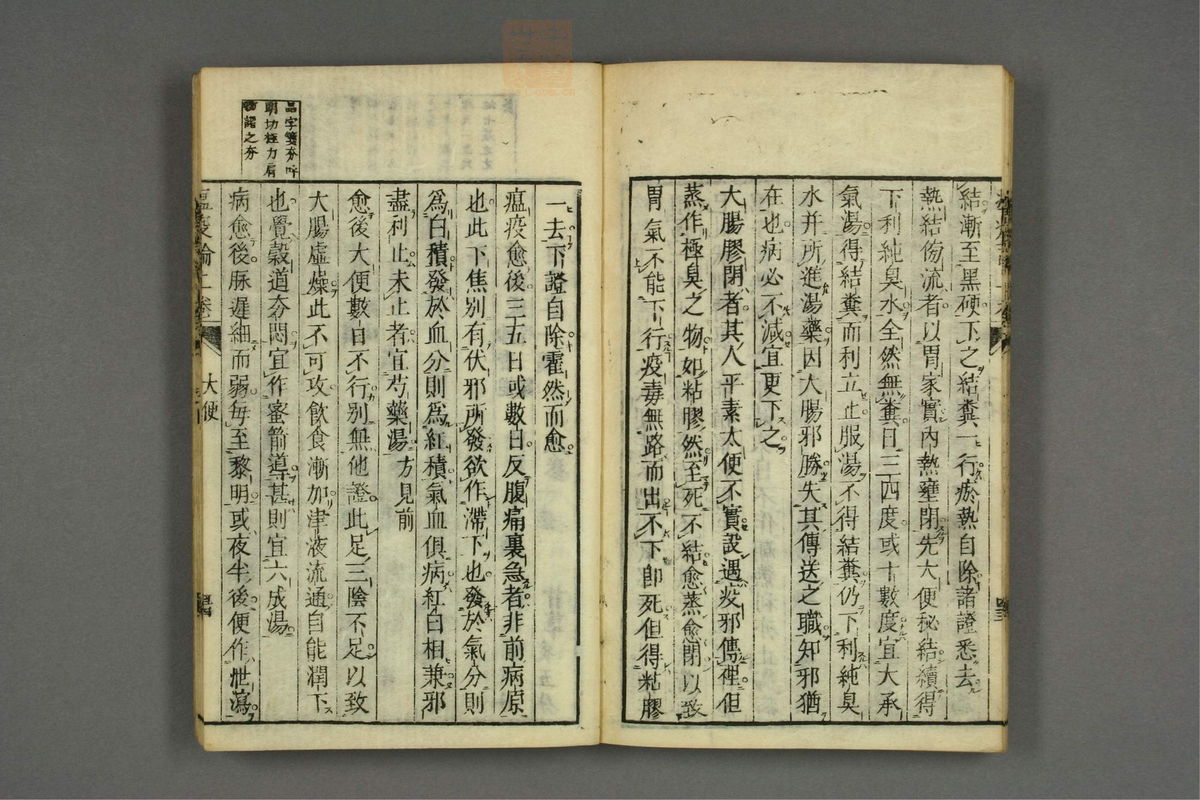 結漸至黑硬下之結糞一行瘀熱自除諸證悉去
熱結傍流者以胃家實內熱壅閉先大便秘結續得
下利純臭水全然無糞日三四度或十數度宜大承
氣湯得結糞而利立止服湯不得結糞仍下利純臭
水并所進湯藥因大腸邪勝失其傳送之職知邪猶
在也病必不減宜更下之
大腸膠閉者其人平素大便不實設遇疫邪傳裡但
蒸作極臭之物如粘膠然至死不結愈蒸愈閉以致
胃氣不能下行疫毒無路而出不下卽死但得粘膠
一去下證自除霍然而愈
瘟疫愈後三五日或數日反腹痛裏急者非前病原
也此下焦別有伏邪所發欲作滯下也發於氣分則
為白積發於血分則為紅積氣血俱病紅白相兼邪
盡利止未止者宜芍藥湯方見前
愈後大便數日不行別無他證此足三陰不足以致
大腸虛燥此不可攻飲食漸加津液流通自能潤下
也覺穀道夯悶宜作蜜箭導甚則宜六成湯
病愈後脉遲細而弱每至黎明或夜半後便作泄瀉
瘟疫論上卷
大便
品字箋夯呼
朗切極力肩
物謂之夯